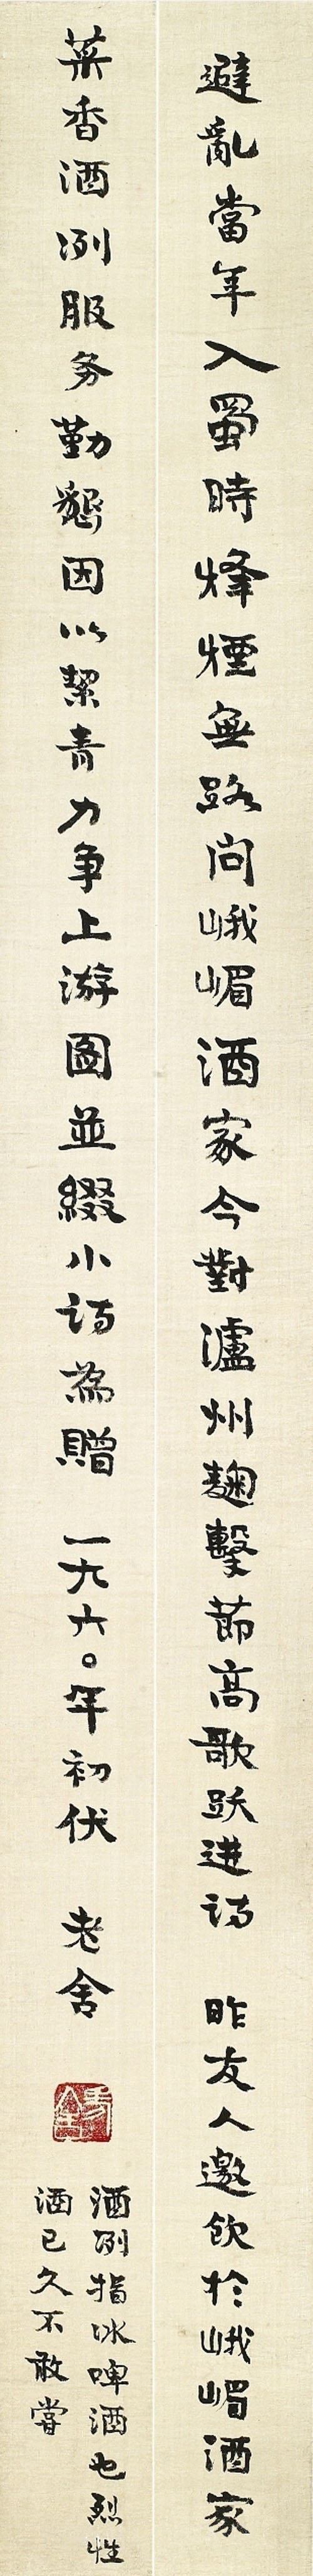 避亂當年入蜀時烽煙無路問峨嵋酒家今對瀘州麴擊節高歌跃进詩 昨友人邀飲於峨嵋酒家
菜香酒冽服务勤懇因以絜青力争上游圖並綴小詩為贈 一九六〇年初伏 老舍
老舍
酒冽指冰啤酒也烈性
酒已久不敢嘗